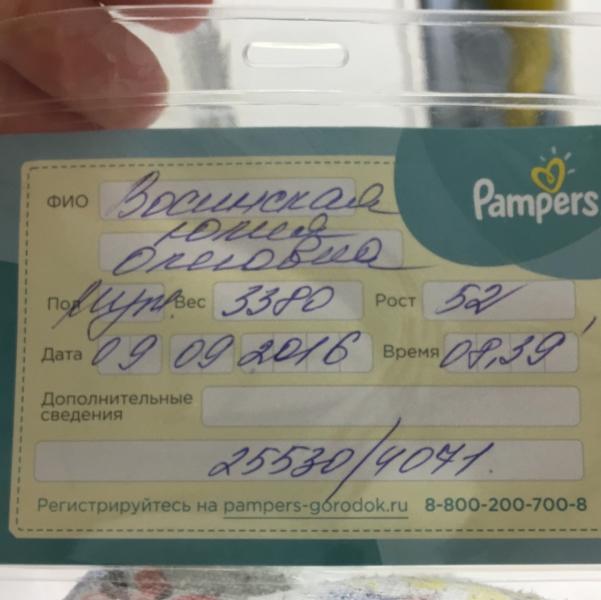 Pampers
ФИО Восинская
Юлия
Олеговна
Пол Муж. Вес 3380 Рост 52
Дата 09 09 2016 Время 08,39
Дополнительные
сведения
25530/4071.
Регистрируйтесь на pampers-gorodok.ru 8-800-200-700-8